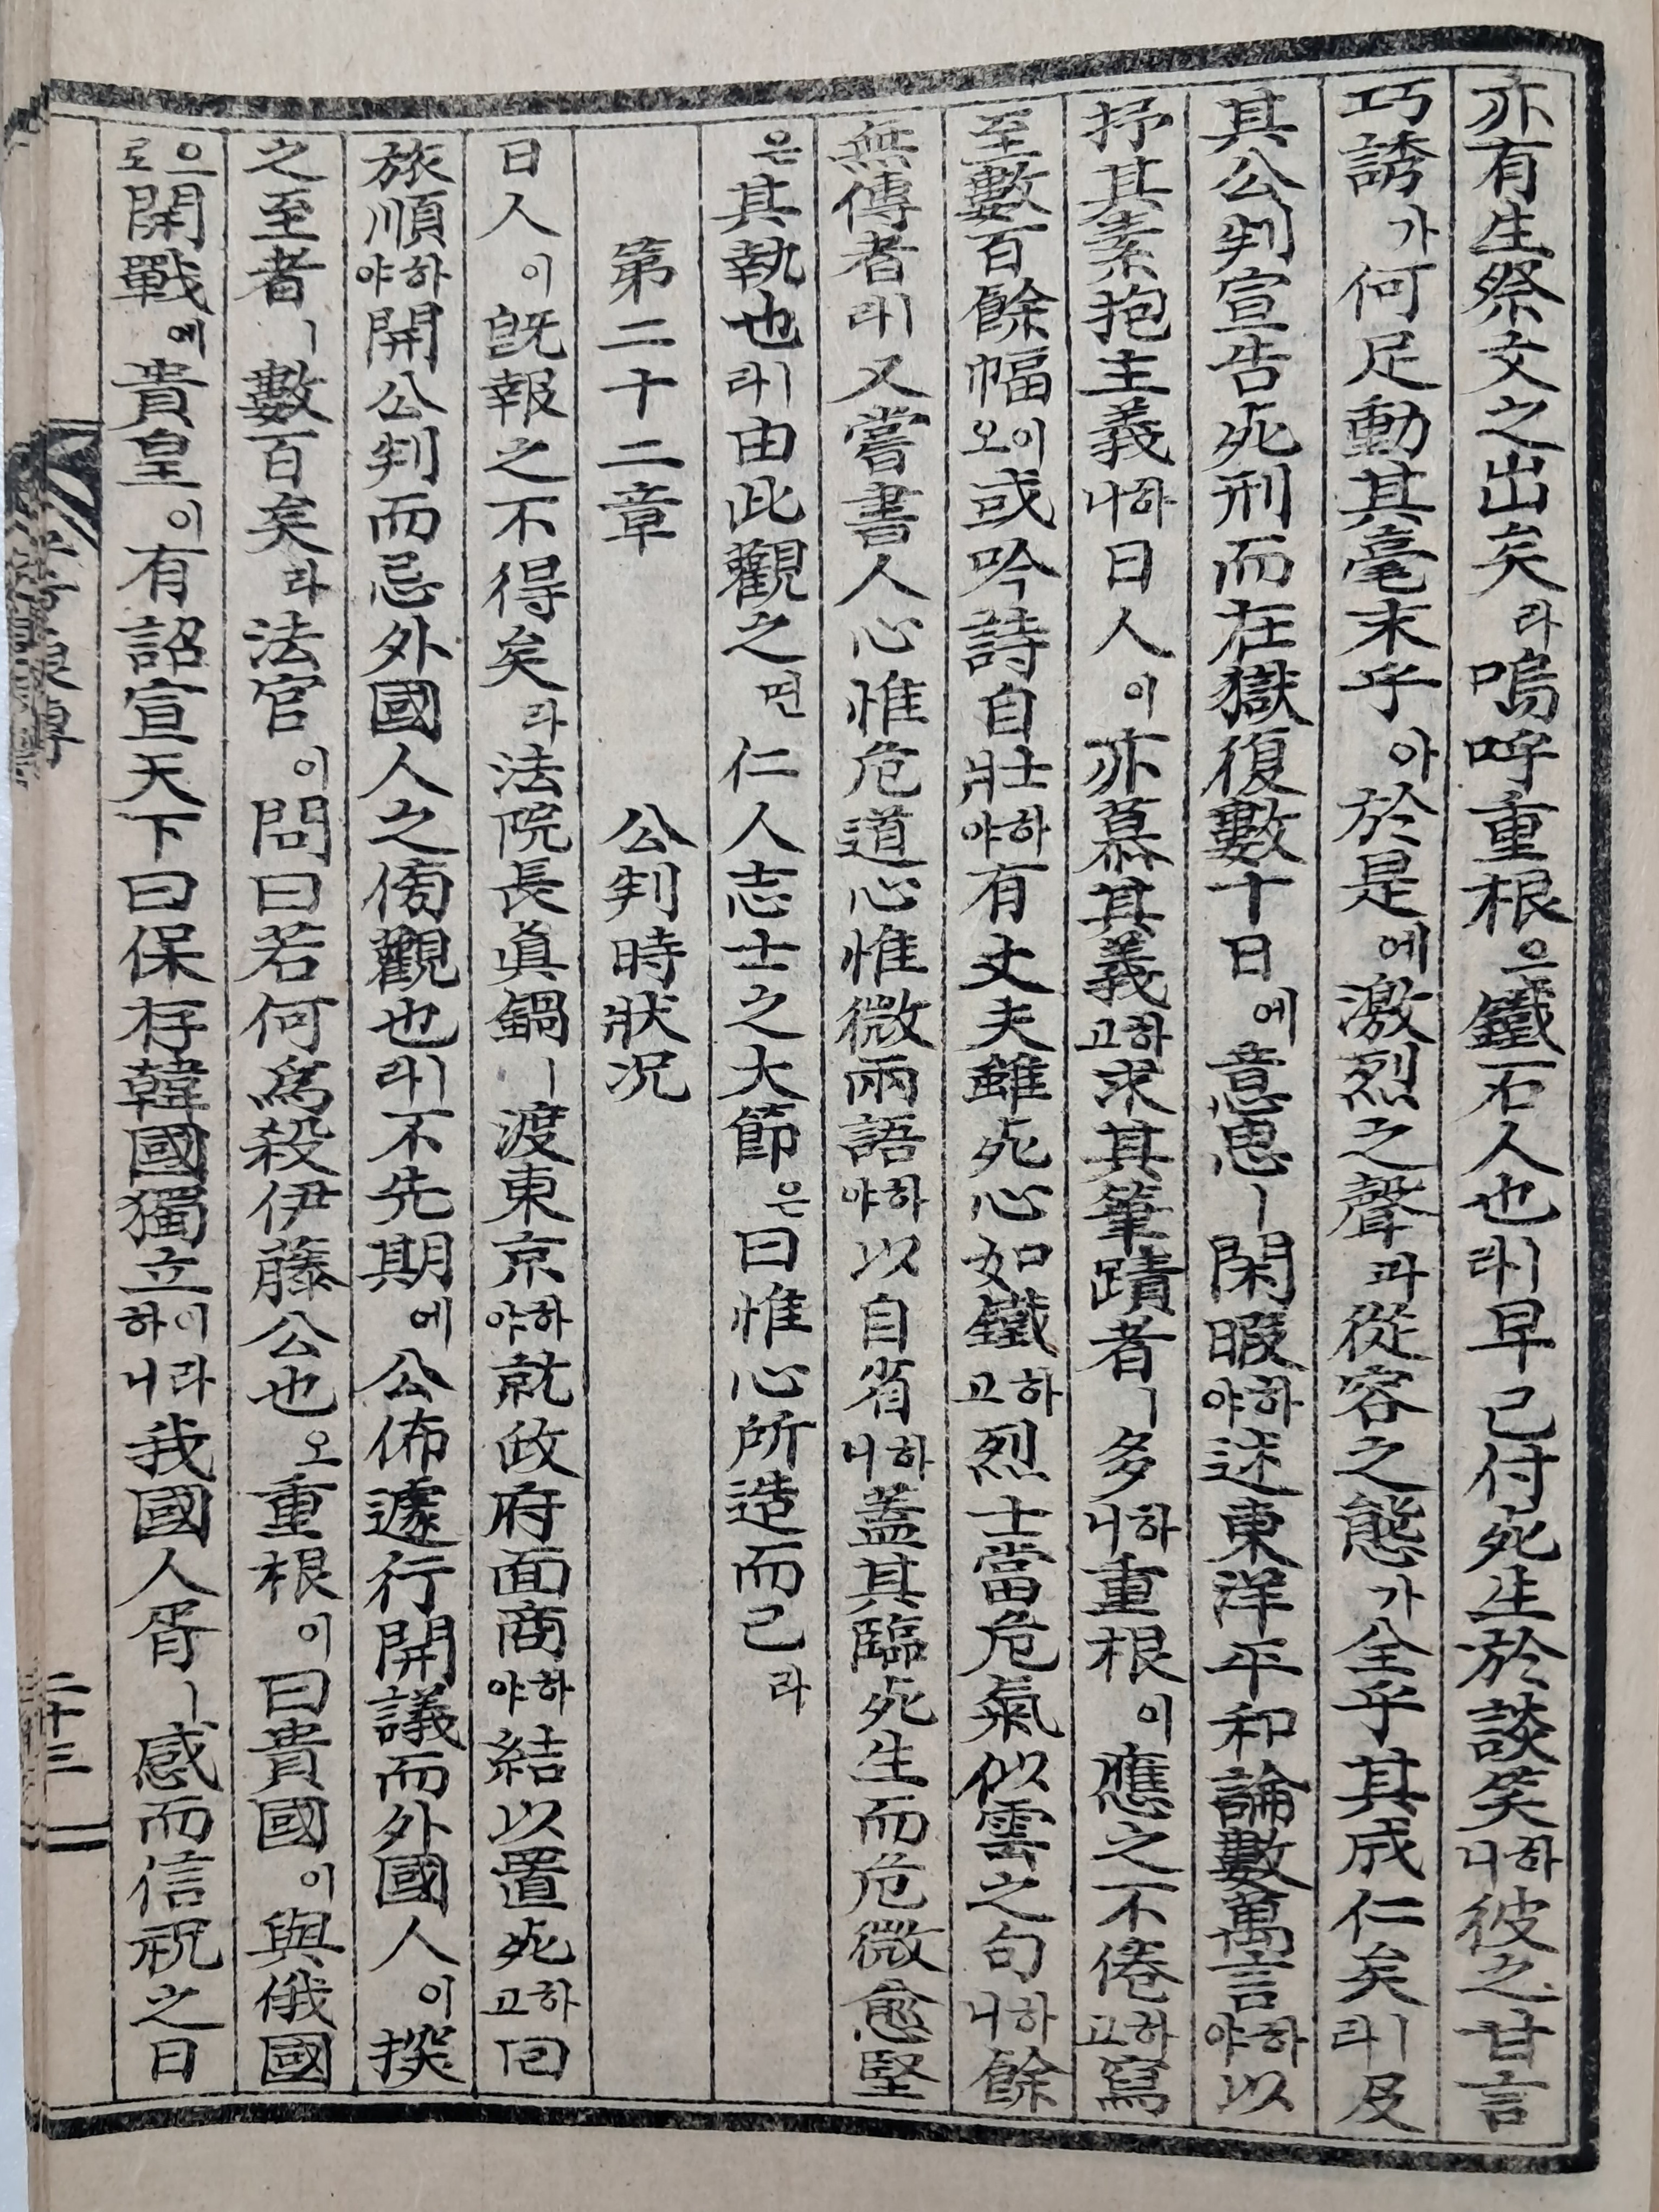 亦有生祭文之出矣라嗚呼重根은鐵石人也라ㅣ早已付死生於談笑하니彼之甘言
巧誘가何足動其毫末乎아於是에激烈之聲과從容之態가全乎其成仁矣라ㅣ及
其公判宣告死刑而在獄復數十日에意思ㅣ閑暇하야述東洋平和論數萬言하야以
抒其素抱主義하니日人이亦慕其義하고求其筆蹟者ㅣ多하니重根이應之不倦하고寫
至數百餘幅이오或吟詩自壯하야有丈夫雖死心如鐵하고烈士當危氣似雲之句하니餘
無傳者라ㅣ又嘗書人心惟危道心惟微兩語하야以自省하니蓋其臨死生而危微愈堅
은其執也라ㅣ由此觀之면仁人志士之大節은曰惟心所造而已라
第二十二章 公判時狀况
日人이旣報之不得矣라法院長眞鍋ㅣ渡東京하야就政府面商하야結以置死하고回
旅順하야開公判而忌外國人之傍觀也라ㅣ不先期에公佈遽行開議而外國人이揆
之至者ㅣ數百矣라法官이問曰若何爲殺伊藤公也오重根이曰貴國이與俄國
으로開戰에貴皇이有詔宣天下曰保存韓國獨立이라하니我國人胥ㅣ感而信祝之日
二十三